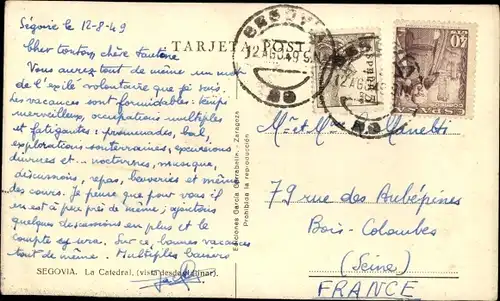 Ségovie le 12-8-49
TARJETA POSTAL
Cher tonton, chère
Vous aurez tout de même un mot
de l'exilé volontaire que je suis.
Les vacances sont formidables:
merveilleux, occupations multiples
et fatigantes: promenades, bal,
explorations souterraines, excursions
diurnes et... nocturnes, musique,
discussions, repas, baveries et même
des cours. Je pense que pour vous il
en est à peu près de même; ajoutons
quelques discussions en plus et le
compte y sera. Sur ce, bonnes vacances
tout de même. Multiples baisers
SEGOVIA. La Catedral, (vista desde
Ediciones García Garrabella.- Zaragoza
Prohibida la reproducción
12 AGO 49
40
M. et Mme
79 rue des Aubépines
Bois-Colombes
(Seine)
FRANCE